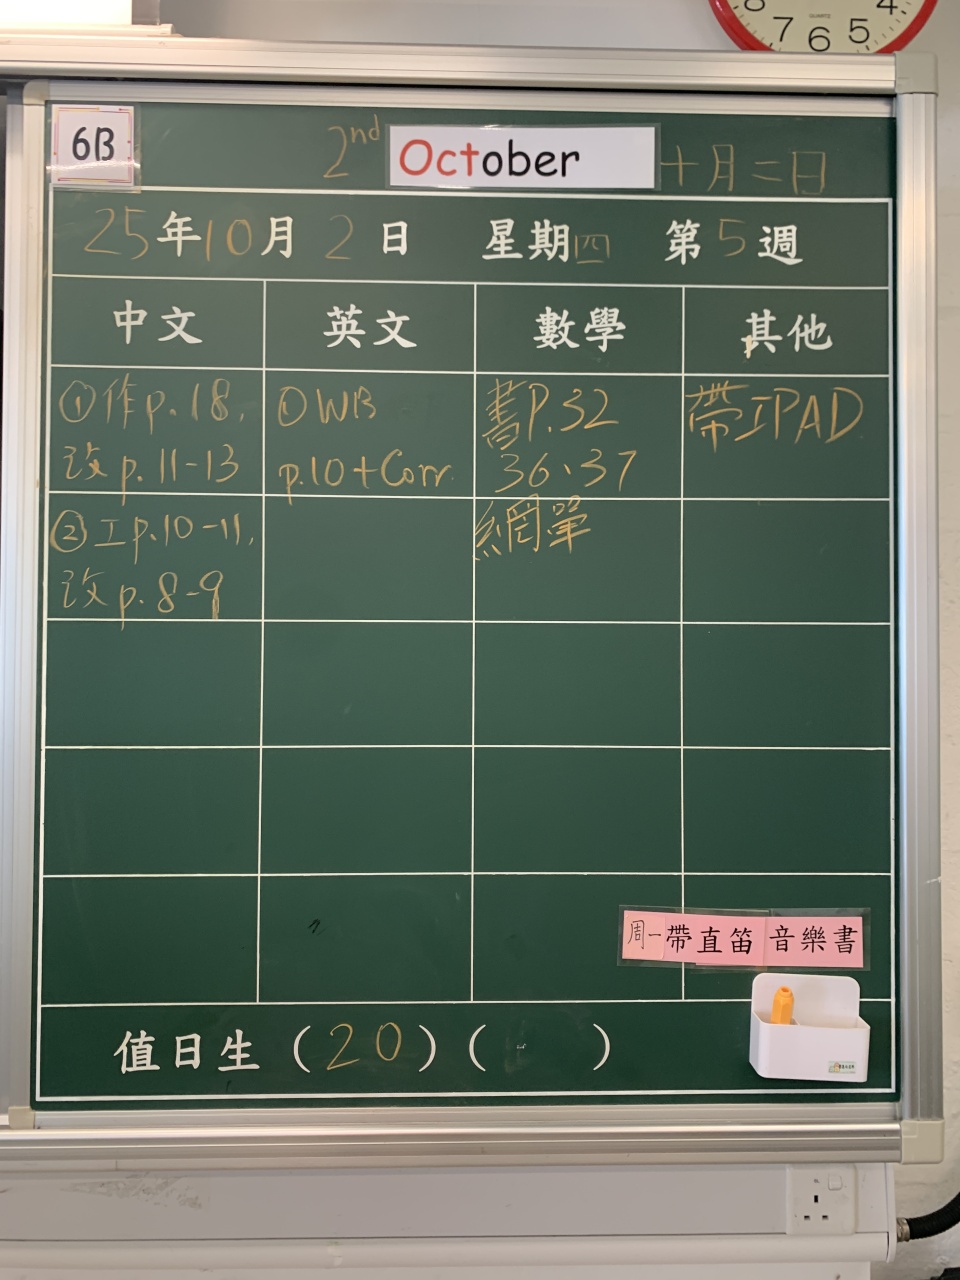 8 7 6 5 4
QUARTZ
6B
2nd October 十月二日
25年10月2日 星期四 第5週
中文 英文 數學 其他
①作p.18,
改p.11-13
②工p.10-11,
改p.8-9
①WB
p.10+Corr.
書P.32
36、37
網單
帶IPAD
周一帶直笛 音樂書
值日生(20)( )